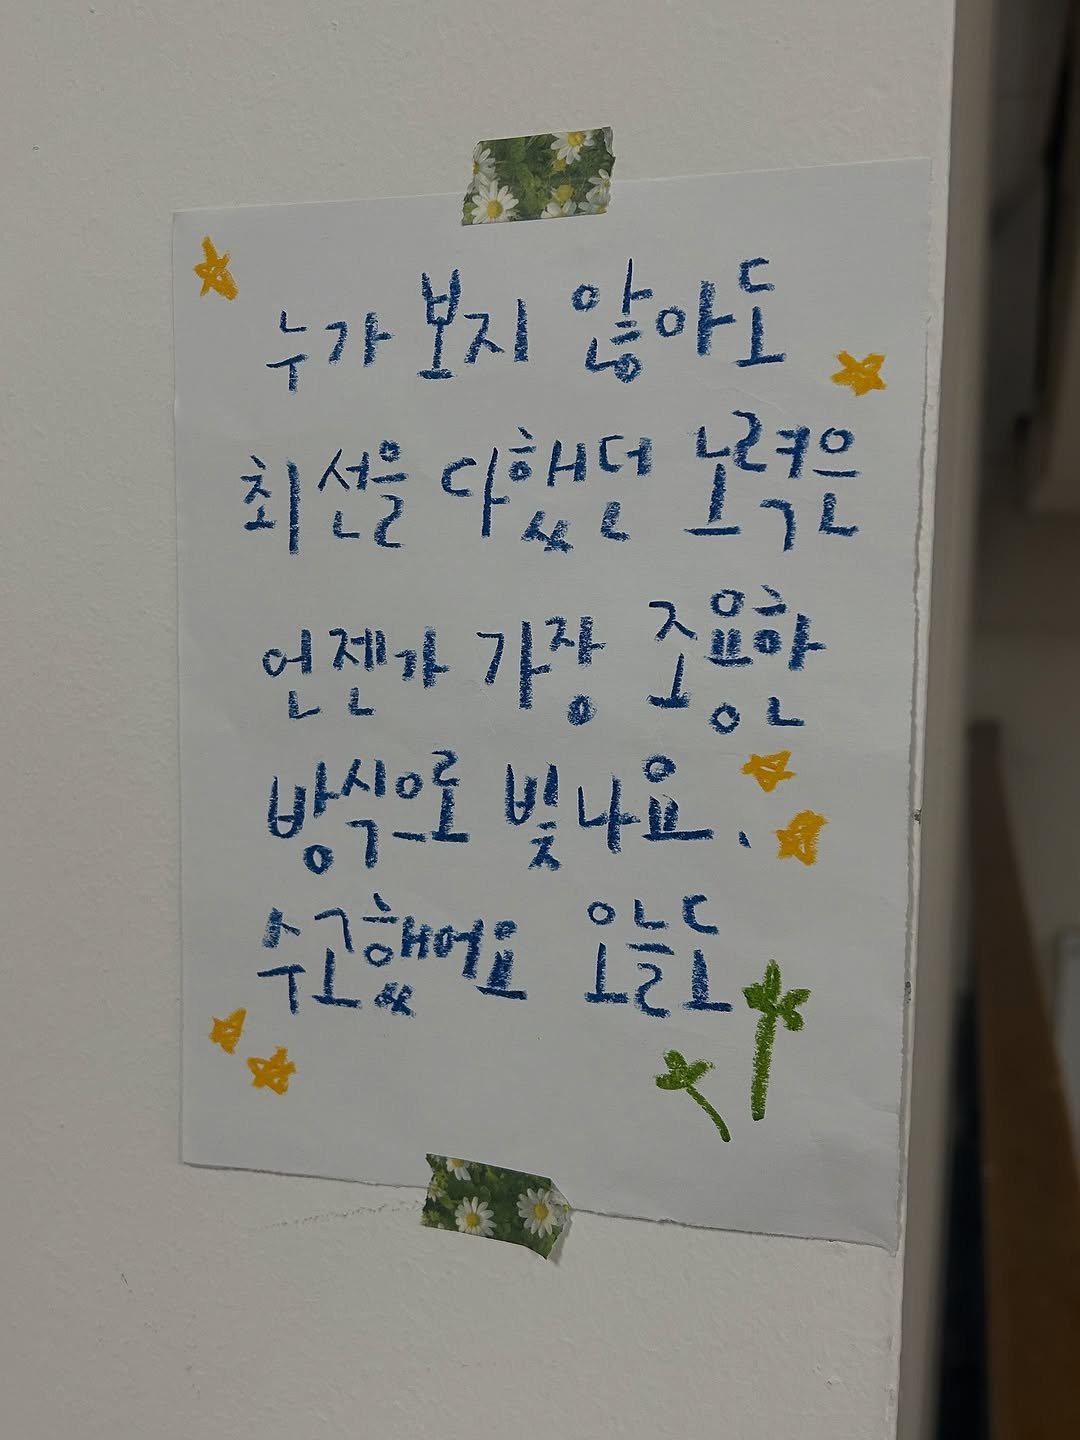 누가 보지 않아도
최선을 다했던 노력은
언젠가 가장 조용한
방식으로 빛나요.
수고했어요 오늘도